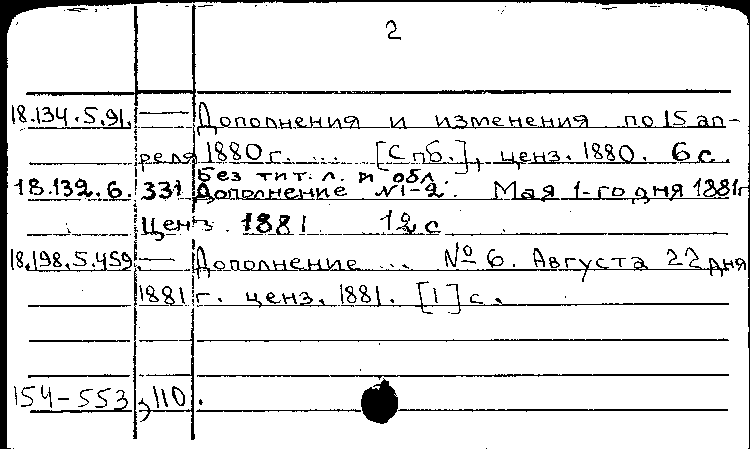 2
18.134.5.91. — Дополнения и изменения по 15 ап-
реля 1880 г. ... [Спб.], ценз. 1880. 6 с.
Без тит. л. и обл.
18.132.6.331 Дополнение №1-2. Мая 1-го дня 1881г
Ценз. 1881 12 с
18.198.5.459. — Дополнение ... № 6. Августа 22 дня
1881 г. ценз. 1881. [1] с.
154-553,110.